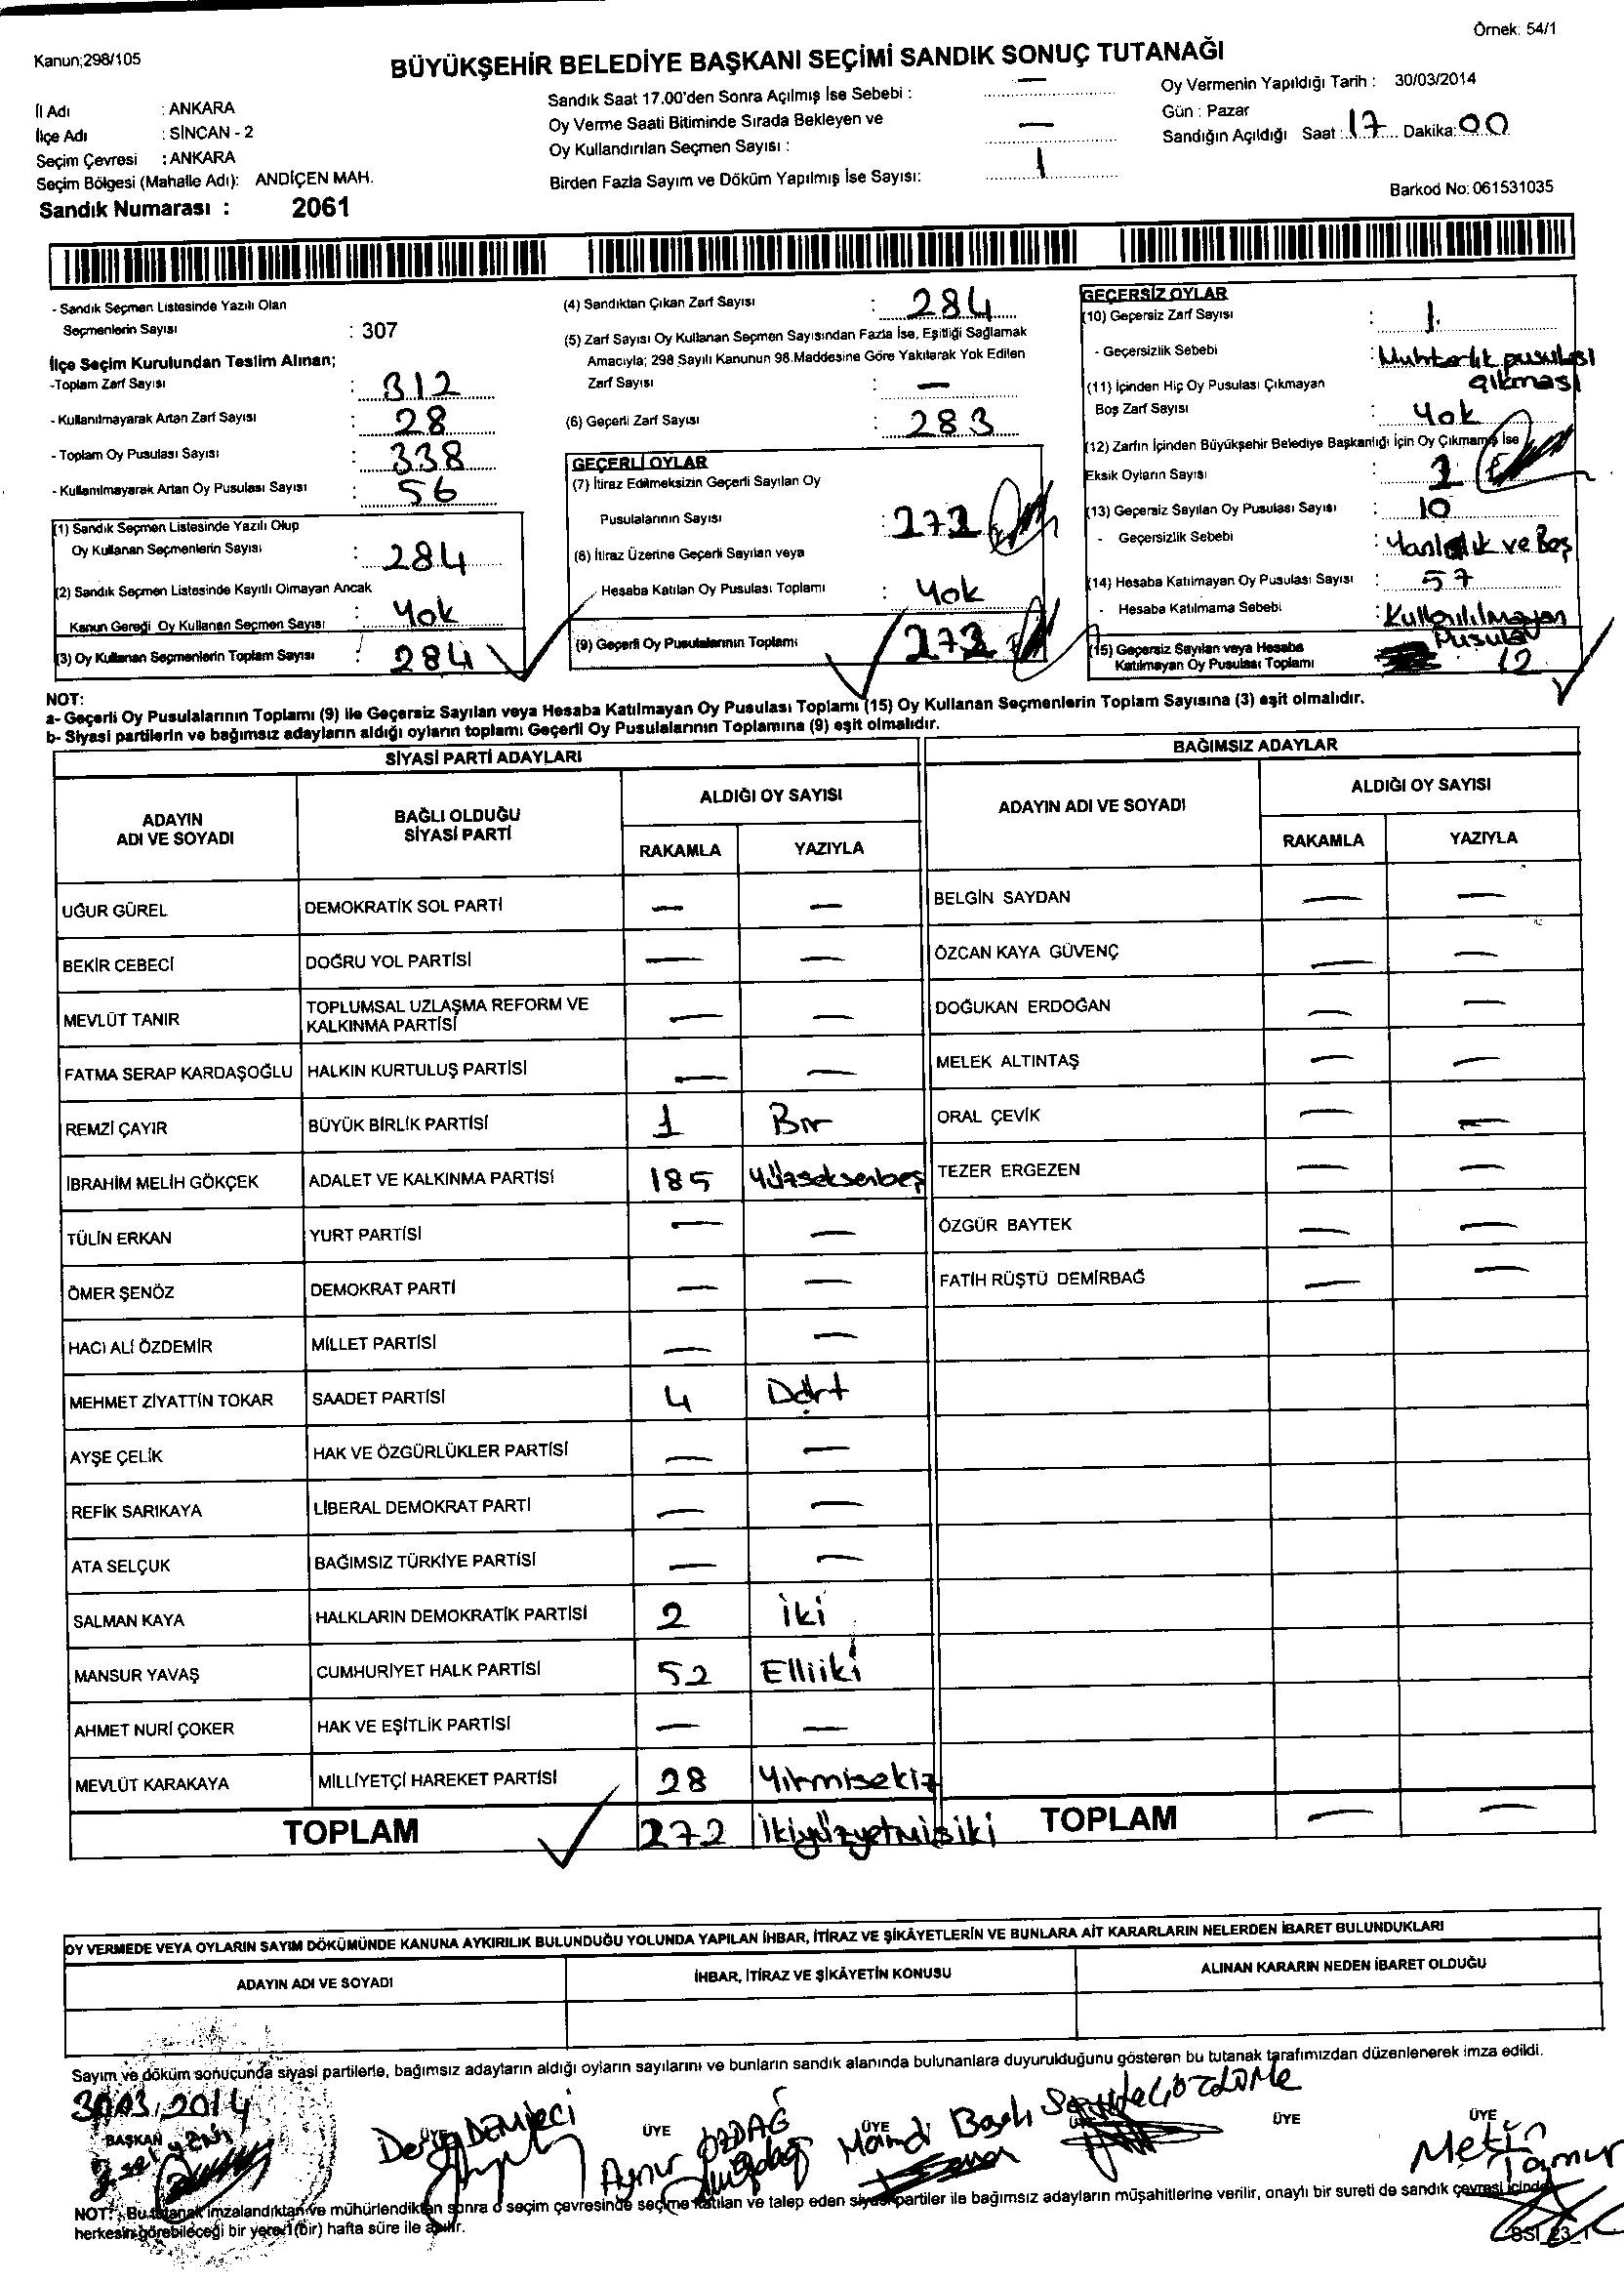 Örnek: 54/1
Kanun;298/105
BÜYÜKŞEHİR BELEDİYE BAŞKANI SEÇİMİ SANDIK SONUÇ TUTANAĞI
İl Adı : ANKARA
İlçe Adı : SİNCAN - 2
Seçim Çevresi : ANKARA
Seçim Bölgesi (Mahalle Adı): ANDİÇEN MAH.
Sandık Numarası : 2061
Sandık Saat 17.00'den Sonra Açılmış İse Sebebi : —
Oy Verme Saati Bitiminde Sırada Bekleyen ve
Oy Kullandırılan Seçmen Sayısı : —
Birden Fazla Sayım ve Döküm Yapılmış İse Sayısı: 1
Oy Vermenin Yapıldığı Tarih : 30/03/2014
Gün : Pazar
Sandığın Açıldığı Saat : 17 Dakika: 00
Barkod No: 061531035
- Sandık Seçmen Listesinde Yazılı Olan
Seçmenlerin Sayısı : 307
İlçe Seçim Kurulundan Teslim Alınan;
-Toplam Zarf Sayısı : 312
- Kullanılmayarak Artan Zarf Sayısı : 28
- Toplam Oy Pusulası Sayısı : 338
- Kullanılmayarak Artan Oy Pusulası Sayısı : 56
(1) Sandık Seçmen Listesinde Yazılı Olup
Oy Kullanan Seçmenlerin Sayısı : 284
(2) Sandık Seçmen Listesinde Kayıtlı Olmayan Ancak
Kanun Gereği Oy Kullanan Seçmen Sayısı : Yok
(3) Oy Kullanan Seçmenlerin Toplam Sayısı : 284
(4) Sandıktan Çıkan Zarf Sayısı : 284
(5) Zarf Sayısı Oy Kullanan Seçmen Sayısından Fazla İse, Eşitliği Sağlamak
Amacıyla; 298 Sayılı Kanunun 98.Maddesine Göre Yakılarak Yok Edilen
Zarf Sayısı : —
(6) Geçerli Zarf Sayısı : 283
GEÇERLİ OYLAR
(7) İtiraz Edilmeksizin Geçerli Sayılan Oy
Pusulalarının Sayısı : 272
(8) İtiraz Üzerine Geçerli Sayılan veya
Hesaba Katılan Oy Pusulası Toplamı : Yok
(9) Geçerli Oy Pusulalarının Toplamı : 272
GEÇERSİZ OYLAR
(10) Geçersiz Zarf Sayısı : 1
- Geçersizlik Sebebi : Muhtarlık pusulası
çıkması
(11) İçinden Hiç Oy Pusulası Çıkmayan
Boş Zarf Sayısı : Yok
(12) Zarfın İçinden Büyükşehir Belediye Başkanlığı İçin Oy Çıkmamış İse
Eksik Oyların Sayısı : 1
(13) Geçersiz Sayılan Oy Pusulası Sayısı : 10
- Geçersizlik Sebebi : Yanlışlık ve Boş
(14) Hesaba Katılmayan Oy Pusulası Sayısı : 57
- Hesaba Katılmama Sebebi : Kullanılmayan
Pusula
(15) Geçersiz Sayılan veya Hesaba
Katılmayan Oy Pusulası Toplamı 12
NOT:
a- Geçerli Oy Pusulalarının Toplamı (9) ile Geçersiz Sayılan veya Hesaba Katılmayan Oy Pusulası Toplamı (15) Oy Kullanan Seçmenlerin Toplam Sayısına (3) eşit olmalıdır.
b- Siyasi partilerin ve bağımsız adayların aldığı oyların toplamı Geçerli Oy Pusulalarının Toplamına (9) eşit olmalıdır.
SİYASİ PARTİ ADAYLARI
ADAYIN ADI VE SOYADI BAĞLI OLDUĞU SİYASİ PARTİ ALDIĞI OY SAYISI
RAKAMLA YAZIYLA
UĞUR GÜREL DEMOKRATİK SOL PARTİ — —
BEKİR CEBECİ DOĞRU YOL PARTİSİ — —
MEVLÜT TANIR TOPLUMSAL UZLAŞMA REFORM VE KALKINMA PARTİSİ — —
FATMA SERAP KARDAŞOĞLU HALKIN KURTULUŞ PARTİSİ — —
REMZİ ÇAYIR BÜYÜK BİRLİK PARTİSİ 1 Bir
İBRAHİM MELİH GÖKÇEK ADALET VE KALKINMA PARTİSİ 185 Yüzseksenbeş
TÜLİN ERKAN YURT PARTİSİ — —
ÖMER ŞENÖZ DEMOKRAT PARTİ — —
HACI ALİ ÖZDEMİR MİLLET PARTİSİ — —
MEHMET ZİYATTİN TOKAR SAADET PARTİSİ 4 Dört
AYŞE ÇELİK HAK VE ÖZGÜRLÜKLER PARTİSİ — —
REFİK SARIKAYA LİBERAL DEMOKRAT PARTİ — —
ATA SELÇUK BAĞIMSIZ TÜRKİYE PARTİSİ — —
SALMAN KAYA HALKLARIN DEMOKRATİK PARTİSİ 2 İki
MANSUR YAVAŞ CUMHURİYET HALK PARTİSİ 52 Elliiki
AHMET NURİ ÇOKER HAK VE EŞİTLİK PARTİSİ — —
MEVLÜT KARAKAYA MİLLİYETÇİ HAREKET PARTİSİ 28 Yirmisekiz
TOPLAM 272 İkiyüzyetmişiki
BAĞIMSIZ ADAYLAR
ADAYIN ADI VE SOYADI ALDIĞI OY SAYISI
RAKAMLA YAZIYLA
BELGİN SAYDAN — —
ÖZCAN KAYA GÜVENÇ — —
DOĞUKAN ERDOĞAN — —
MELEK ALTINTAŞ — —
ORAL ÇEVİK — —
TEZER ERGEZEN — —
ÖZGÜR BAYTEK — —
FATİH RÜŞTÜ DEMİRBAĞ — —
TOPLAM — —
OY VERMEDE VEYA OYLARIN SAYIM DÖKÜMÜNDE KANUNA AYKIRILIK BULUNDUĞU YOLUNDA YAPILAN İHBAR, İTİRAZ VE ŞİKÂYETLERİN VE BUNLARA AİT KARARLARIN NELERDEN İBARET BULUNDUKLARI
ADAYIN ADI VE SOYADI İHBAR, İTİRAZ VE ŞİKÂYETİN KONUSU ALINAN KARARIN NEDEN İBARET OLDUĞU
Sayım ve döküm sonucunda siyasi partilerle, bağımsız adayların aldığı oyların sayılarını ve bunların sandık alanında bulunanlara duyurulduğunu gösteren bu tutanak tarafımızdan düzenlenerek imza edildi.
30.03.2014
BAŞKAN ÜYE ÜYE ÜYE ÜYE ÜYE
Derya DEMİRCİ Aynur ÖZDAĞ Hamdi Metin Tamur
NOT: Bu tutanak imzalandıktan ve mühürlendikten sonra o seçim çevresinde seçime katılan ve talep eden siyasi partiler ile bağımsız adayların müşahitlerine verilir, onaylı bir sureti de sandık çevresi içinde
herkesin görebileceği bir yere 1(bir) hafta süre ile asılır.
SSI_23_1